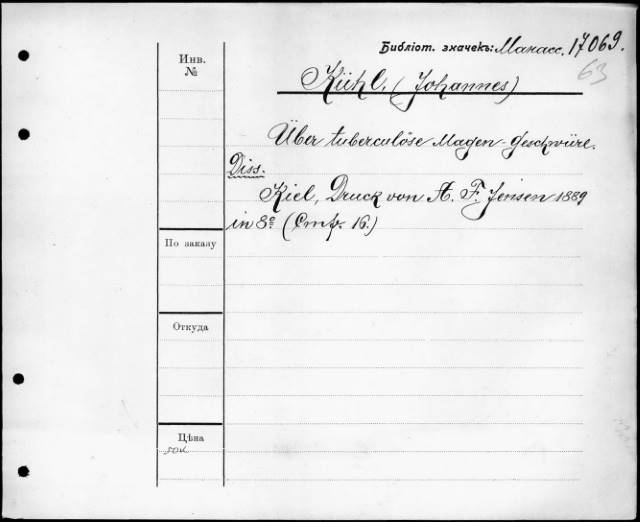 Библіот. значекъ: Манасс. 17069.
63
Инв.
№
Kühl. (Johannes)
Über tuberculöse Magen-Geschwüre.
Diss.
Kiel, Druck von A. F. Jensen 1889
in 8º (Стр. 16.)
По заказу
Откуда
Цѣна
50к